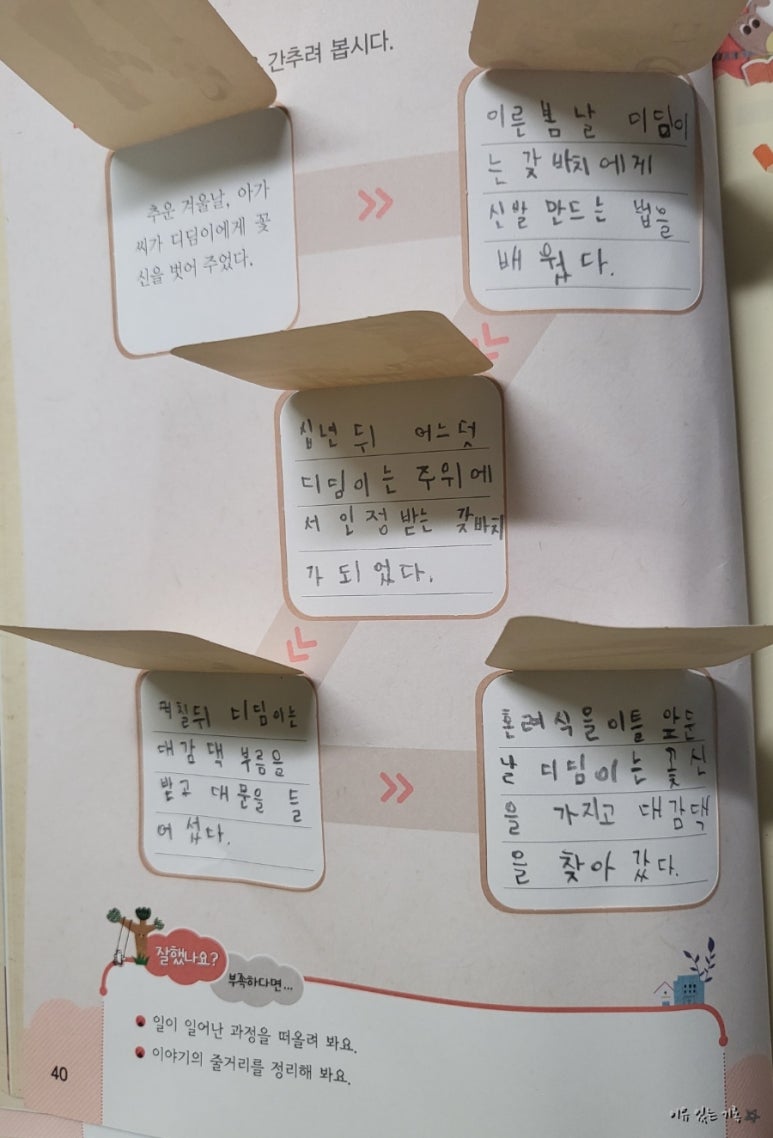 간추려 봅시다.
추운 겨울날, 아가
씨가 디딤이에게 꽃
신을 벗어 주었다.
이른 봄 날 디딤이
는 갖바치에게
신발 만드는 법을
배웠다.
십년 뒤 어느덧
디딤이는 주위에
서 인정받는 갖바치
가 되었다.
며칠뒤 디딤이는
대감댁 부름을
받고 대문을 들
어섰다.
혼례식을 이틀 앞둔
날 디딤이는 꽃신
을 가지고 대감댁
을 찾아 갔다.
잘했나요?
부족하다면...
일이 일어난 과정을 떠올려 봐요.
이야기의 줄거리를 정리해 봐요.
40
이유 있는 기록